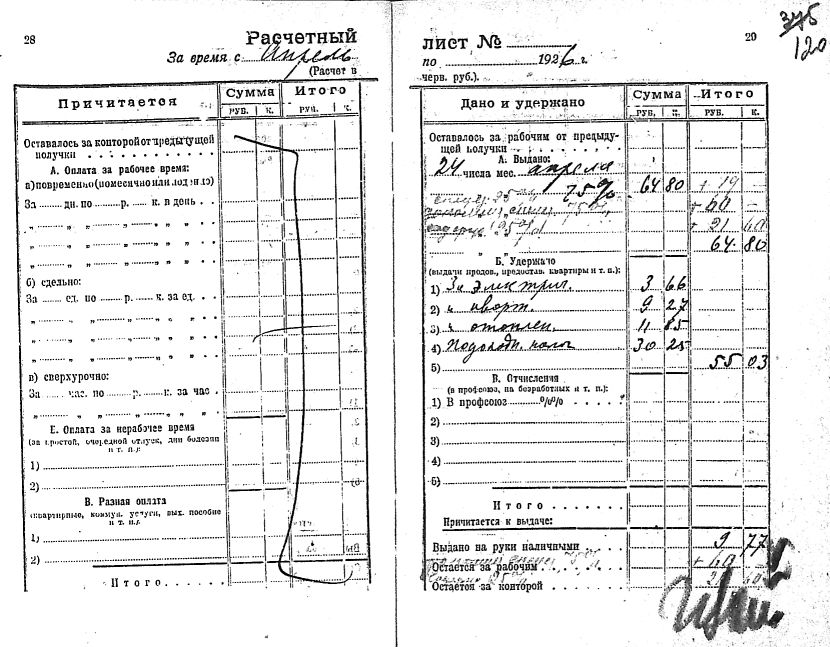 28
Расчетный
За время с Апрель
(Расчет в
Причитается
Сумма
Итого
РУБ. К. РУБ. К.
Оставалось за конторой от предыдущей
получки
А. Оплата за рабочее время:
а) повременно (помесячно или поденно)
За дн. по р. к. в день
" " " " "
" " " " "
" " " " "
б) сдельно:
За ед. по р. к. за ед.
" " " " "
" " " " "
" " " " "
в) сверхурочно:
За час. по р. к. за час
" " " " "
Е. Оплата за нерабочее время
(за простой, очередной отпуск, дни болезни
и т. п.):
1)
2)
В. Разная оплата
(квартирные, коммун. услуги, вых. пособие
и т. п.):
1)
2)
Итого
375
120
29
лист №
по 1926 г.
черв. руб.).
Дано и удержано
Сумма
Итого
РУБ. К. РУБ. К.
Оставалось за рабочим от предыду-
щей получки
А. Выдано:
24 числа мес. апреля
75% 64 80 + 19 -
25%
75% + 60 -
25% + 21 60
64 80
Б. Удержано
(выдачи продов., предостав. квартиры и т. п.):
1) За электрич. 3 66
2) " кварт. 9 27
3) " отоплен. 11 85
4) Подоходн. налог 30 25
5) 55 03
В. Отчисления
(в профсоюз, на безработных и т. п.):
1) В профсоюз %%
2)
3)
4)
5)
Итого
Причитается к выдаче:
Выдано на руки наличными 9 77
75%
Остается за рабочим + 60
25%
Остается за конторой 21 60